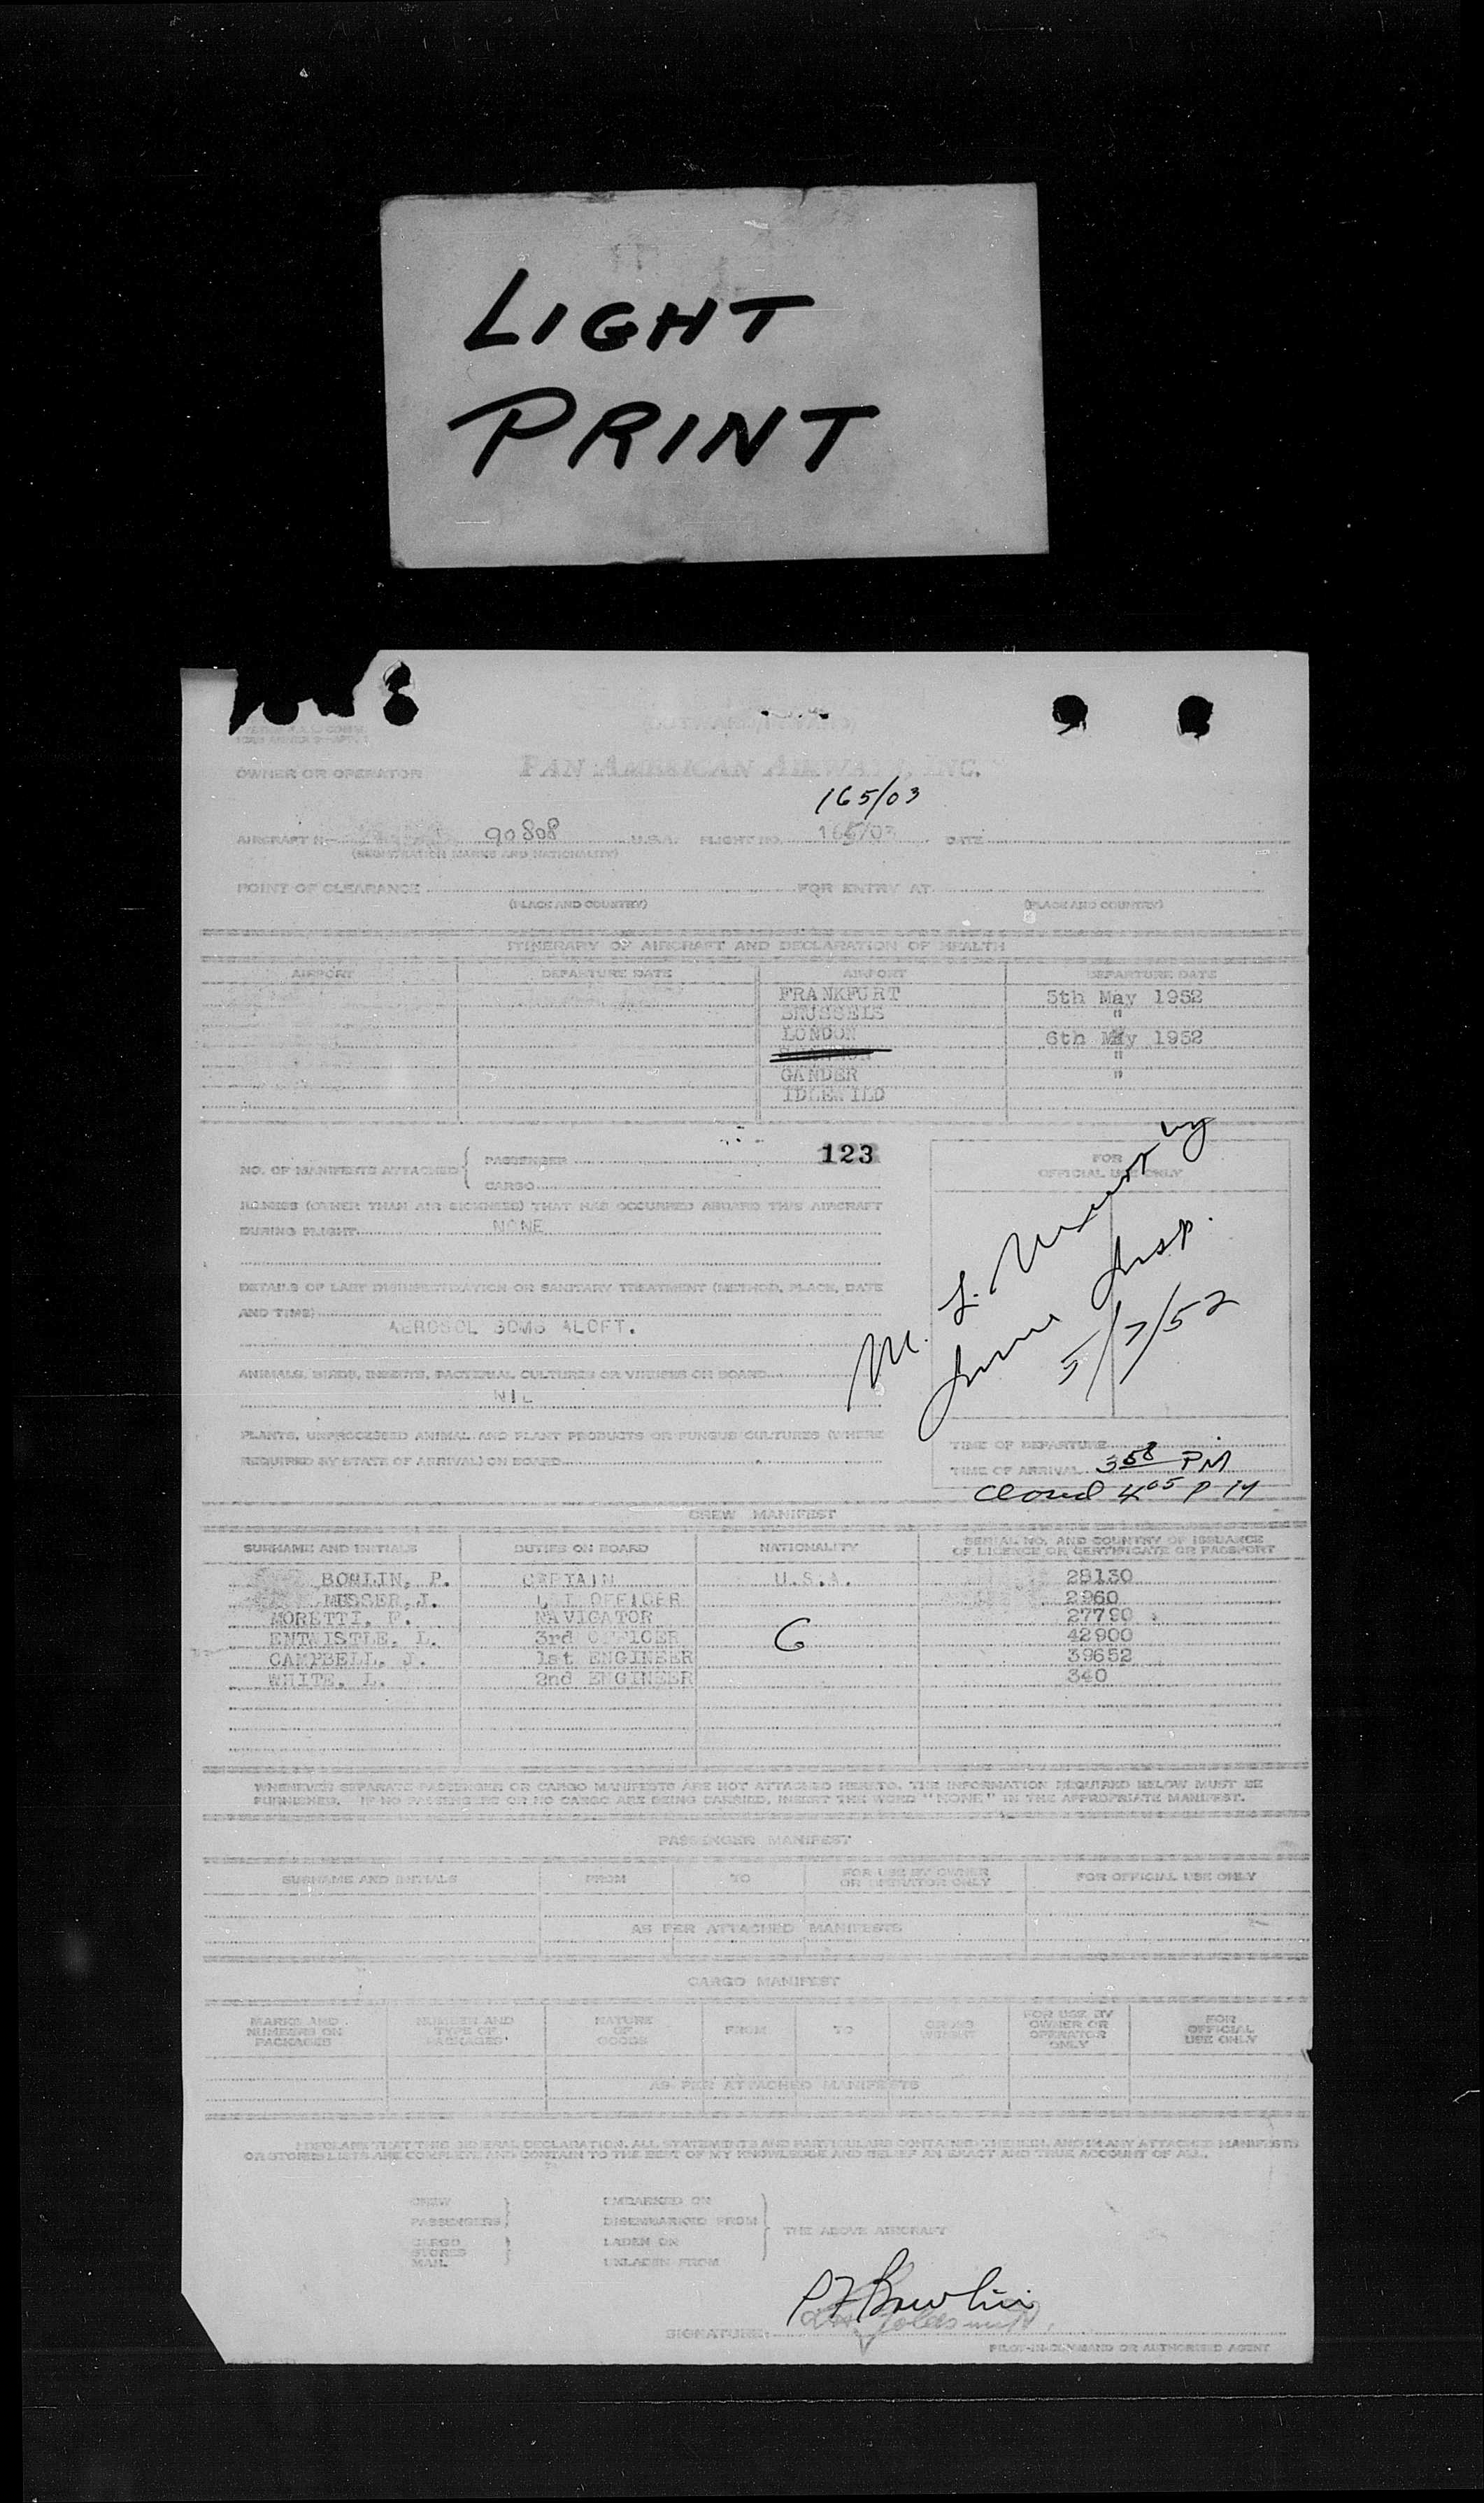 LIGHT
PRINT
OWNER OR OPERATOR
PAN AMERICAN AIRWAYS, INC.
165/03
AIRCRAFT N- 90808 U.S.A. FLIGHT NO. 165/03 DATE
(REGISTRATION MARKS AND NATIONALITY)
POINT OF CLEARANCE FOR ENTRY AT
(PLACE AND COUNTRY) (PLACE AND COUNTRY)
ITINERARY OF AIRCRAFT AND DECLARATION OF HEALTH
AIRPORT DEPARTURE DATE AIRPORT DEPARTURE DATE
FRANKFURT 5th May 1952
BRUSSELS "
LONDON 6th May 1952
"
GANDER "
IDLEWILD
123
NO. OF MANIFESTS ATTACHED { PASSENGER
CARGO
FOR
OFFICIAL USE ONLY
ILLNESS (OTHER THAN AIR SICKNESS) THAT HAS OCCURRED ABOARD THIS AIRCRAFT
DURING FLIGHT NONE
DETAILS OF LAST DISINSECTIZATION OR SANITARY TREATMENT (METHOD, PLACE, DATE
AND TIME)
AEROSOL BOMB ALOFT.
M. L.
Insp.
5/7/52
ANIMALS, BIRDS, INSECTS, BACTERIAL CULTURES OR VIRUSES ON BOARD
NIL
PLANTS, UNPROCESSED ANIMAL AND PLANT PRODUCTS OR FUNGUS CULTURES (WHERE
REQUIRED BY STATE OF ARRIVAL) ON BOARD
TIME OF DEPARTURE
TIME OF ARRIVAL 358 PM
Closed 405 PM
CREW MANIFEST
SURNAME AND INITIALS DUTIES ON BOARD NATIONALITY SERIAL NO. AND COUNTRY OF ISSUANCE
OF LICENCE OR CERTIFICATE OR PASSPORT
BOWLIN, P. CAPTAIN U.S.A. 28130
MESSER, J. OFFICER 2960
MORETTI, F. NAVIGATOR 27790
ENTWISTLE, L. 3rd OFFICER 6 42900
CAMPBELL, J. 1st ENGINEER 39652
WHITE, L. 2nd ENGINEER 340
WHENEVER SEPARATE PASSENGER OR CARGO MANIFESTS ARE NOT ATTACHED HERETO, THE INFORMATION REQUIRED BELOW MUST BE
FURNISHED. IF NO PASSENGERS OR NO CARGO ARE BEING CARRIED, INSERT THE WORD "NONE" IN THE APPROPRIATE MANIFEST.
PASSENGER MANIFEST
SURNAME AND INITIALS FROM TO FOR USE BY OWNER
OR OPERATOR ONLY FOR OFFICIAL USE ONLY
AS PER ATTACHED MANIFESTS
CARGO MANIFEST
MARKS AND
NUMBERS ON
PACKAGES NUMBER AND
TYPE OF
PACKAGES NATURE
OF
GOODS FROM TO GROSS
WEIGHT FOR USE BY
OWNER OR
OPERATOR
ONLY FOR
OFFICIAL
USE ONLY
AS PER ATTACHED MANIFESTS
I DECLARE THAT THIS GENERAL DECLARATION, ALL STATEMENTS AND PARTICULARS CONTAINED THEREIN, AND IN ANY ATTACHED MANIFESTS
OR STORES LISTS ARE COMPLETE AND CONTAIN TO THE BEST OF MY KNOWLEDGE AND BELIEF AN EXACT AND TRUE ACCOUNT OF ALL.
CREW EMBARKED ON
PASSENGERS DISEMBARKED FROM
THE ABOVE AIRCRAFT
CARGO LADEN ON
STORES
MAIL UNLADEN FROM
P F Bowlin
SIGNATURE:
PILOT-IN-COMMAND OR AUTHORISED AGENT